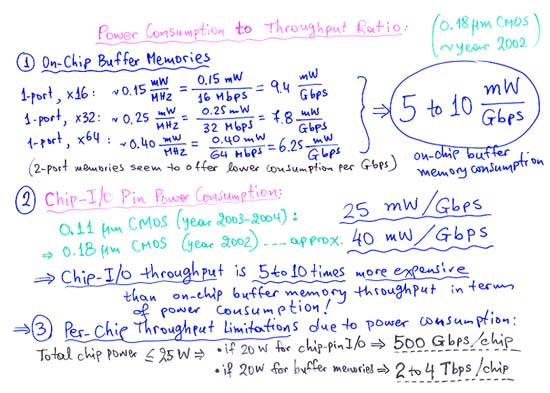 Power Consumption to Throughput Ratio:
(0.18 μm CMOS
~year 2002)
① On-Chip Buffer Memories
1-port, x16: ~0.15 mW/MHz = 0.15 mW/16 Mbps = 9.4 mW/Gbps
1-port, x32: ~0.25 mW/MHz = 0.25 mW/32 Mbps = 7.8 mW/Gbps
1-port, x64: ~0.40 mW/MHz = 0.40 mW/64 Mbps = 6.25 mW/Gbps
⇒ 5 to 10 mW/Gbps
on-chip buffer
memory consumption
(2-port memories seem to offer lower consumption per Gbps)
② Chip-I/O Pin Power Consumption:
0.11 μm CMOS (year 2003-2004): 25 mW/Gbps
⇒ 0.18 μm CMOS (year 2002) .... approx. 40 mW/Gbps
⇒ Chip-I/O throughput is 5 to 10 times more expensive
than on-chip buffer memory throughput in terms
of power consumption!
⇒ ③ Per-Chip Throughput Limitations due to power consumption:
Total chip power ≤ 25 W ⇒ • if 20W for chip-pin I/O ⇒ 500 Gbps/chip
• if 20W for buffer memories ⇒ 2 to 4 Tbps/chip